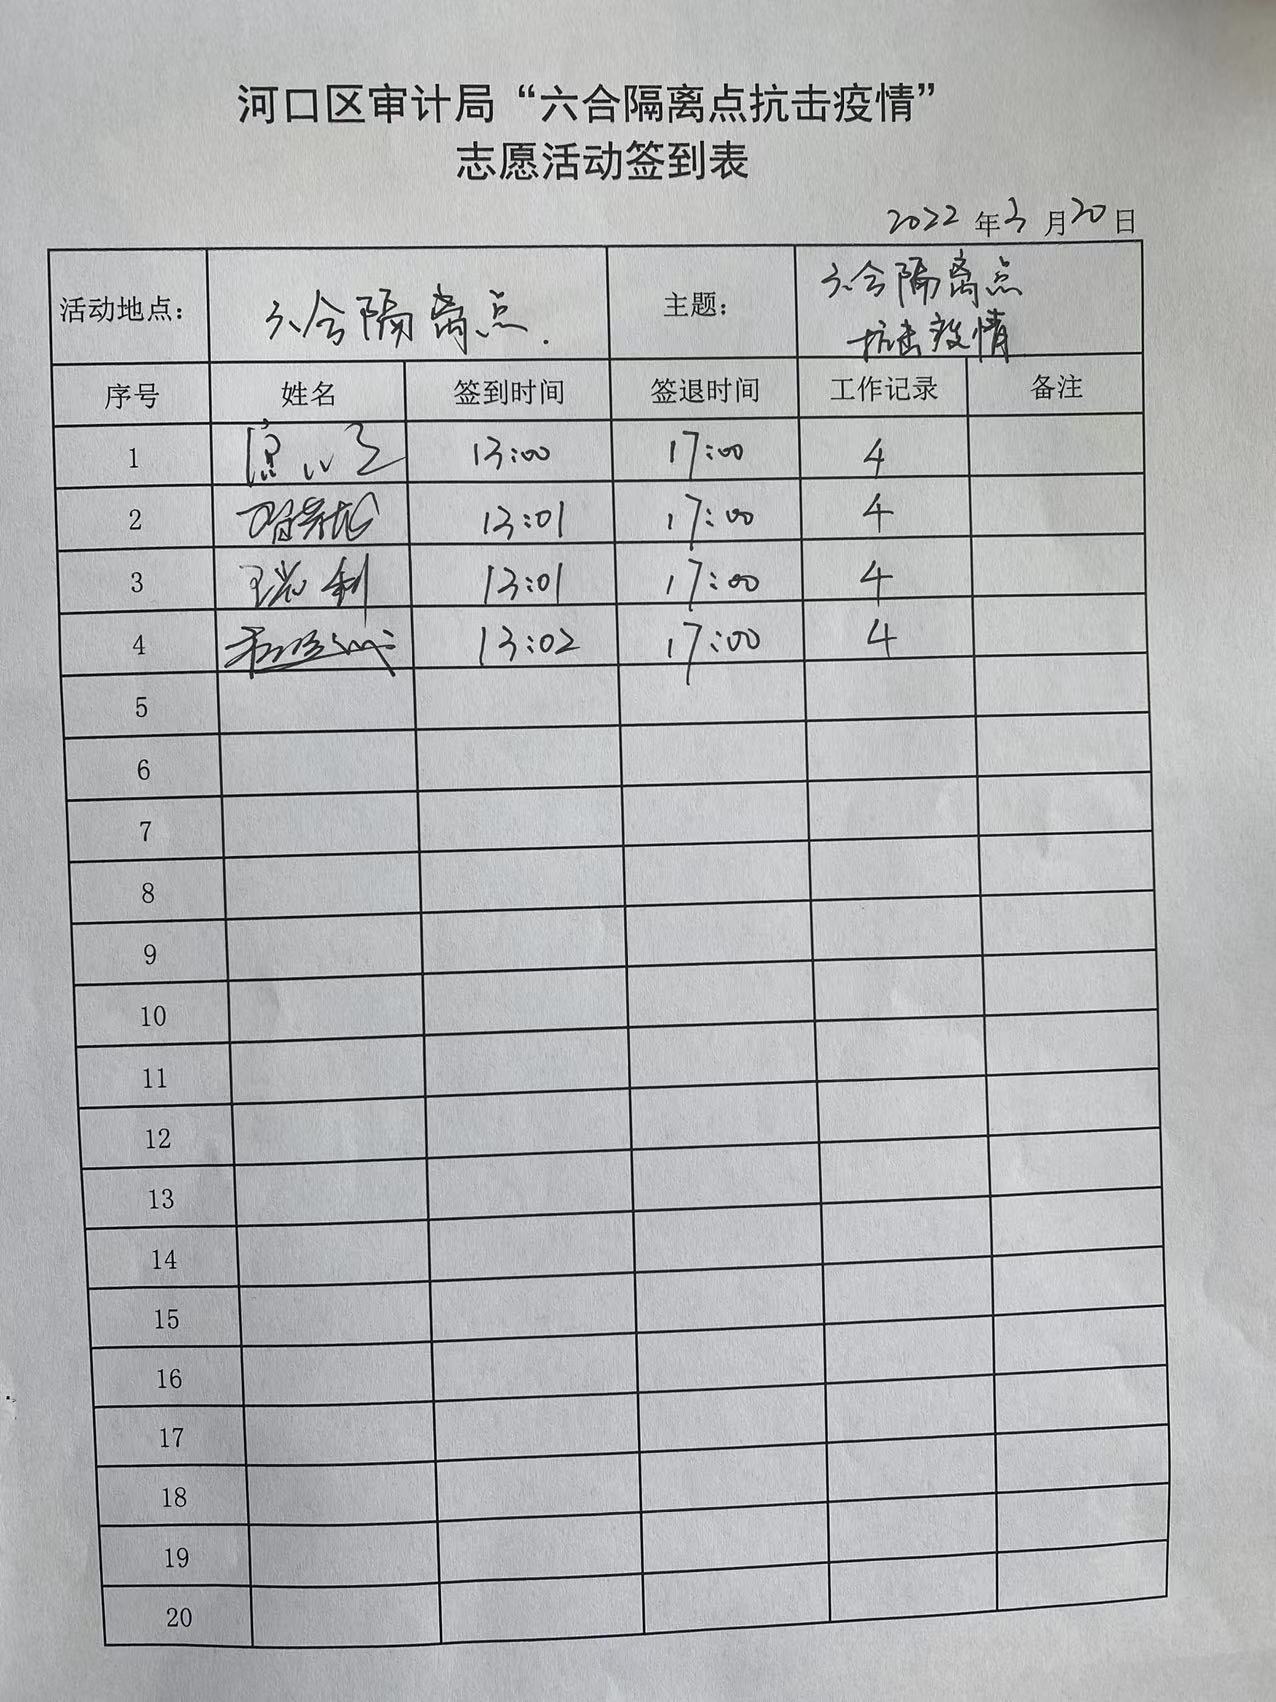 河口区审计局“六合隔离点抗击疫情”
志愿活动签到表
2022 年 3 月 20 日
活动地点： 六合隔离点. 主题： 六合隔离点
抗击疫情
序号 姓名 签到时间 签退时间 工作记录 备注
1 13:00 17:00 4
2 13:01 17:00 4
3 13:01 17:00 4
4 13:02 17:00 4
5
6
7
8
9
10
11
12
13
14
15
16
17
18
19
20